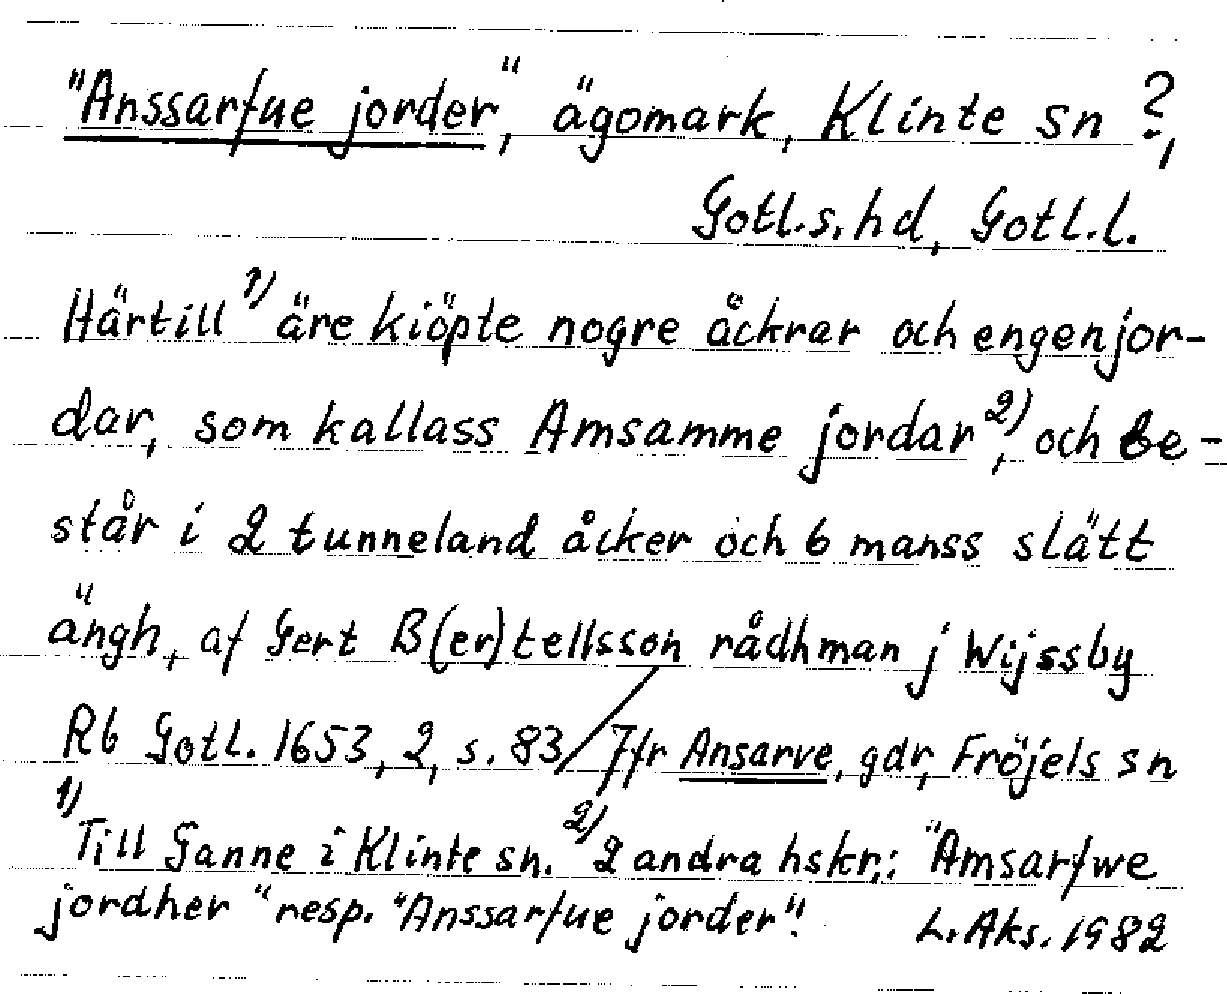 "Anssarfue jorder", ägomark, Klinte sn ?,
Gotl.s.hd, Gotl.l.
Härtill 1) äre kiöpte nogre åckrar och engenjor-
dar, som kallass Amsamme jordar 2), och be-
står i 2 tunneland åcker och 6 manss slätt
ängh, af Gert B(er)tellsson rådhman j Wijssby
Rb Gotl. 1653, 2, s. 83 / Jfr Ansarve, gdr, Fröjels sn
1) Till Ganne i Klinte sn. 2) 2 andra hskr.: "Amsarfwe
jordher" resp. "Anssarfue jorder".' L. Aks. 1982